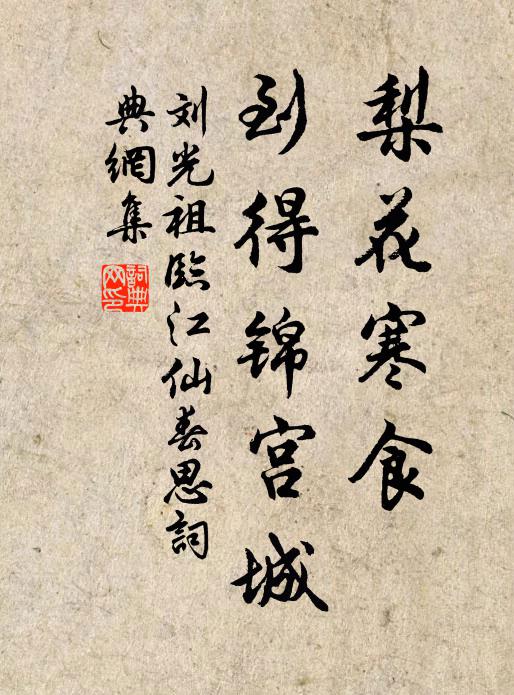 梨花寒食
到得锦宫城
刘光祖臨江仙春思詞
典網集
詞典网印